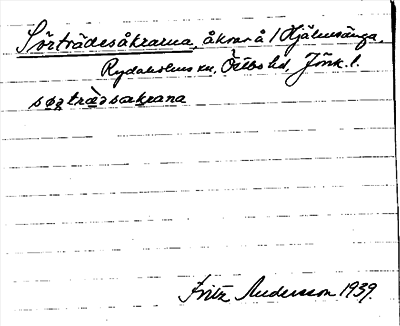 Sörträdesåkrarna, åkrar å 1 Hjälmsänga,
Rydaholms sn, Östbo hd, Jönk. l.
sørtrædsakrana
Fritz Andersson 1939.